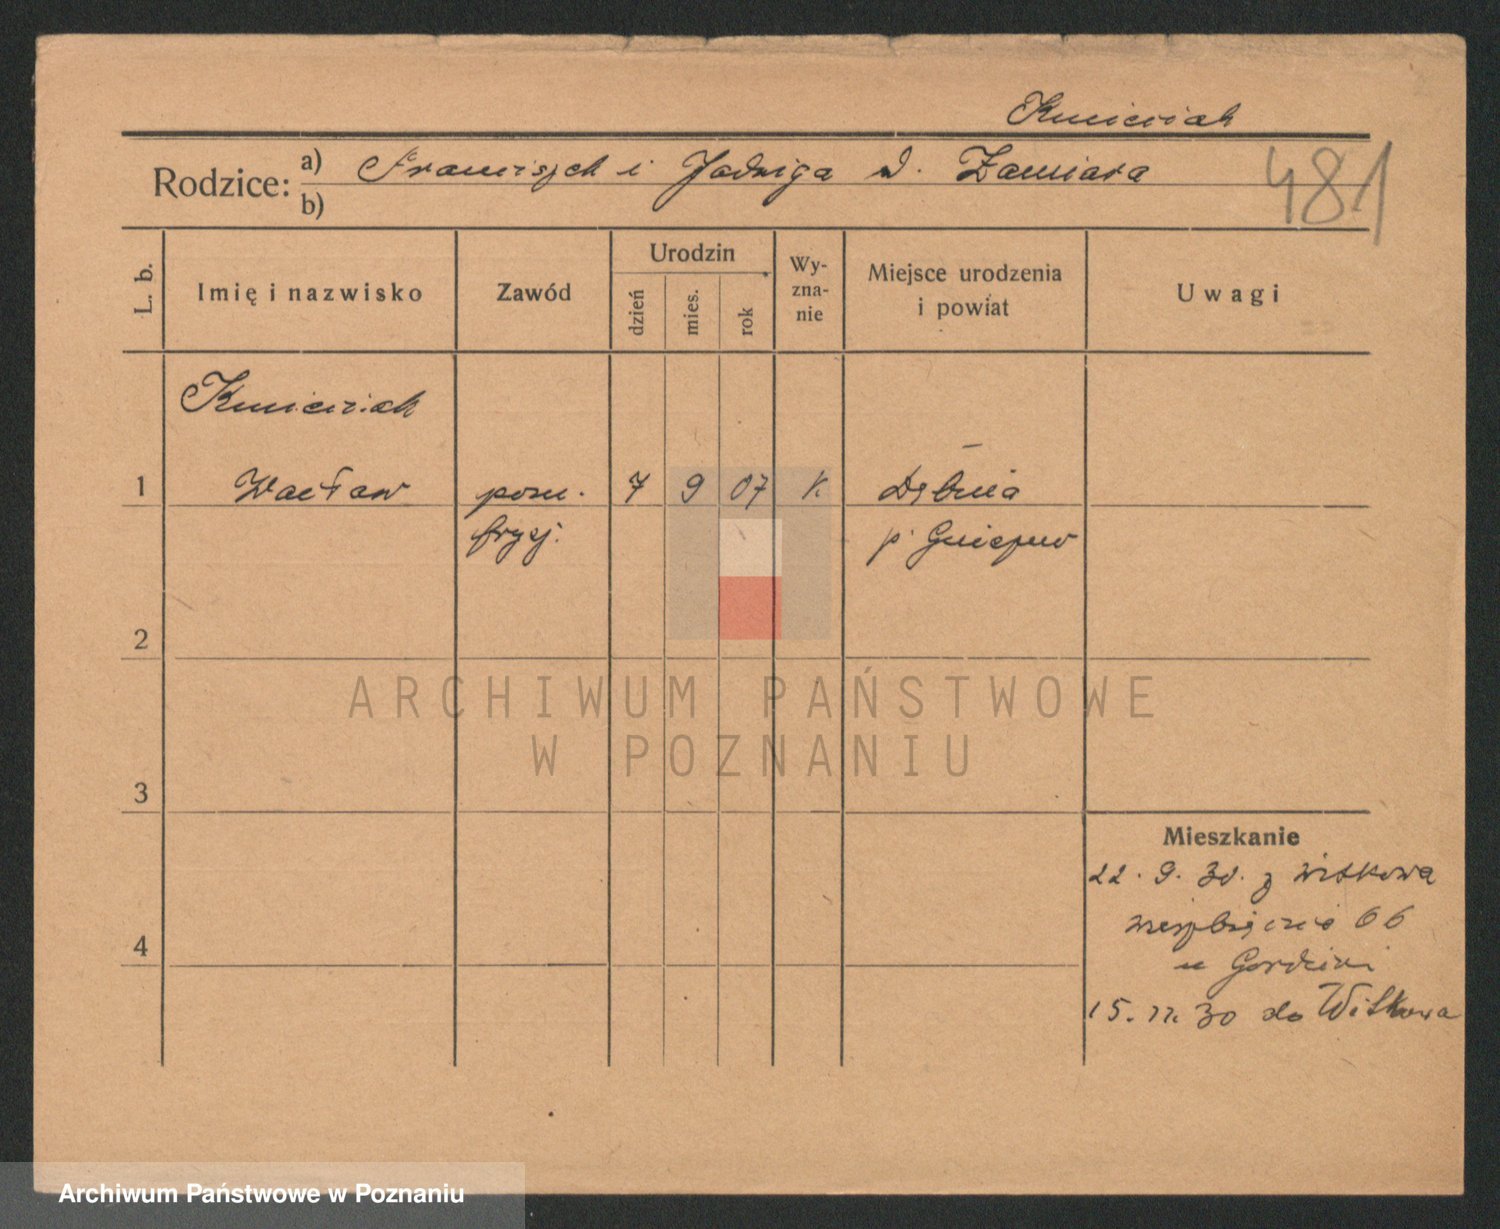 Kmieciak
Rodzice: a) Franciszek i Jadwiga d. Zamiara
b)
481
L. b. Imię i nazwisko Zawód Urodzin dzień mies. rok Wy-zna-nie Miejsce urodzenia i powiat Uwagi
Kmieciak
1 Wacław pom. 7 9 07 K Dębnia
fryzj. p. Gniezno
2
3
4
Mieszkanie
22. 9. 30. z Witkowa
66
u
15. 11. 30 do Witkowa
ARCHIWUM PAŃSTWOWE
W POZNANIU
Archiwum Państwowe w Poznaniu